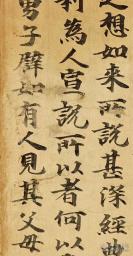 之想如來所說甚深經典
利為人宣說所以者何以
男子譬如有人見其父母